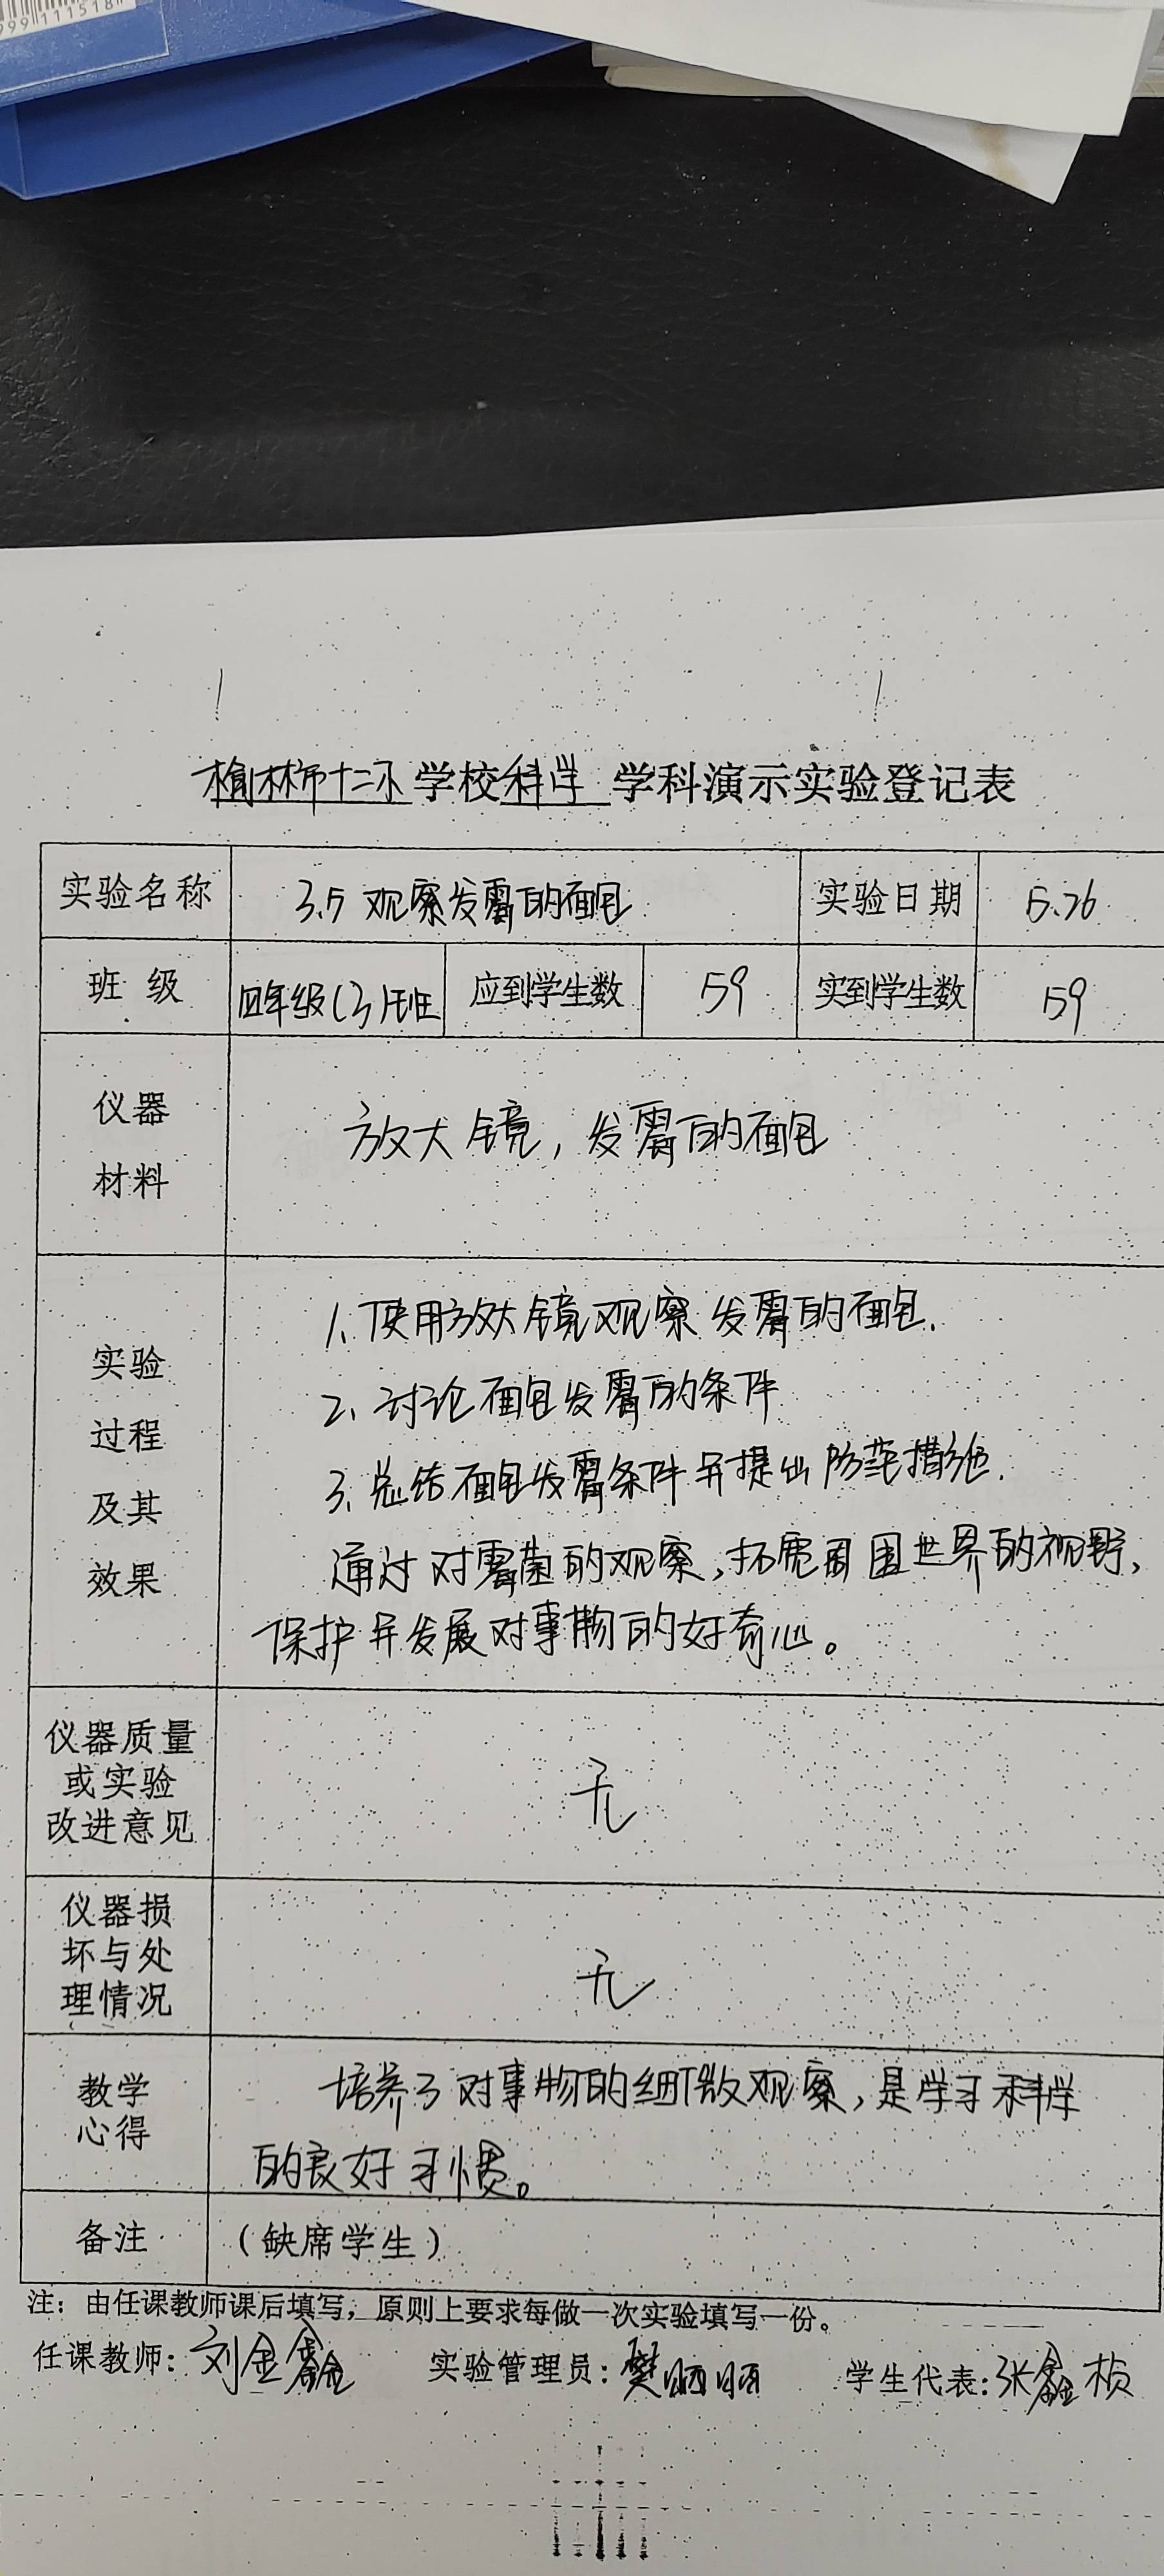 999111518
榆林市十二小学校科学学科演示实验登记表
实验名称 3.5 观察发霉的面包 实验日期 5.26
班级 四年级(3)班 应到学生数 59 实到学生数 59
仪器
材料
放大镜，发霉的面包
实验
过程
及其
效果
1、使用放大镜观察发霉的面包.
2、讨论面包发霉的条件
3、总结面包发霉条件并提出防范措施.
通过对霉菌的观察，拓宽周围世界的视野，
保护并发展对事物的好奇心。
仪器质量
或实验
改进意见
无
仪器损
坏与处
理情况
无
教学
心得
培养了对事物的细微观察，是学习科学
的良好习惯。
备注 （缺席学生）
注：由任课教师课后填写，原则上要求每做一次实验填写一份。
任课教师：刘金鑫 实验管理员：樊 学生代表：张鑫桢